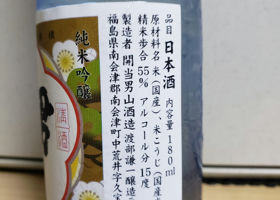 品目 日本酒 内容量180ml
原材料名 米(国産)、米こうじ(国産
精米歩合55% アルコール分15度
製造者 開当男山酒造 渡部謙一醸造
福島県南会津郡南会津町中荒井字久宝
純米吟醸
清酒